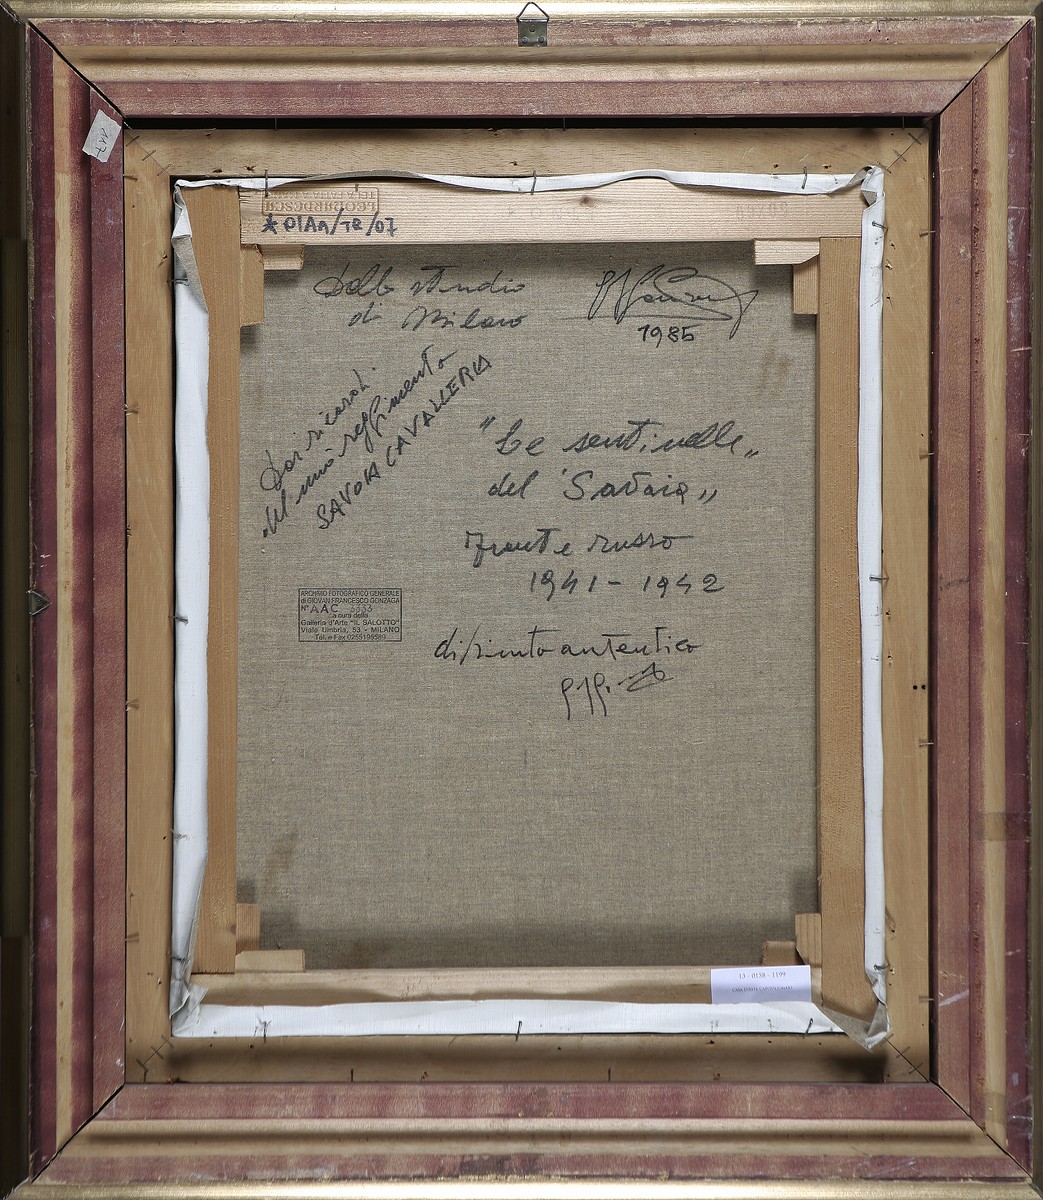 117
*DIAN/TR/07
Dallo studio
di Milano
1985
Dai ricordi
del mio reggimento
SAVOIA CAVALLERIA
"Le sentinelle"
del "Savoia"
Fronte russo
1941-1942
ARCHIVIO FOTOGRAFICO GENERALE
di GIOVAN FRANCESCO GONZAGA
N° AAC
a cura della
Galleria d'Arte "IL SALOTTO"
Viale Umbria, 53 - MILANO
Tel. e Fax 0255195589
dipinto autentico
13 - 0158 - 1199
CASA D'ASTE CAPITOLIUMART